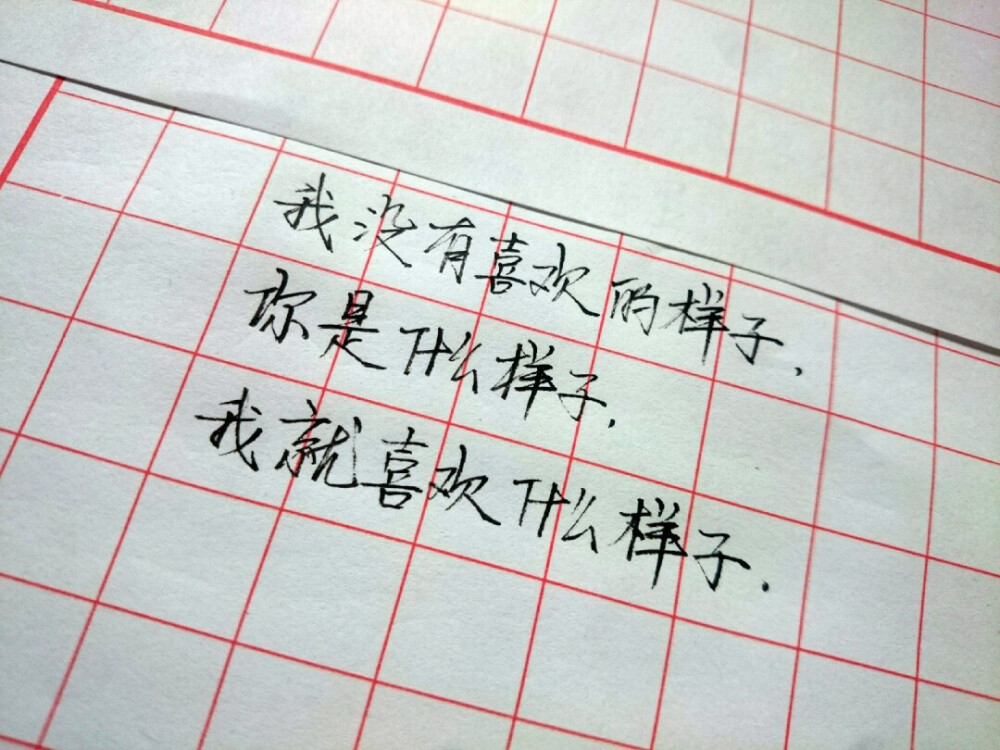 我没有喜欢的样子,
你是什么样子,
我就喜欢什么样子.